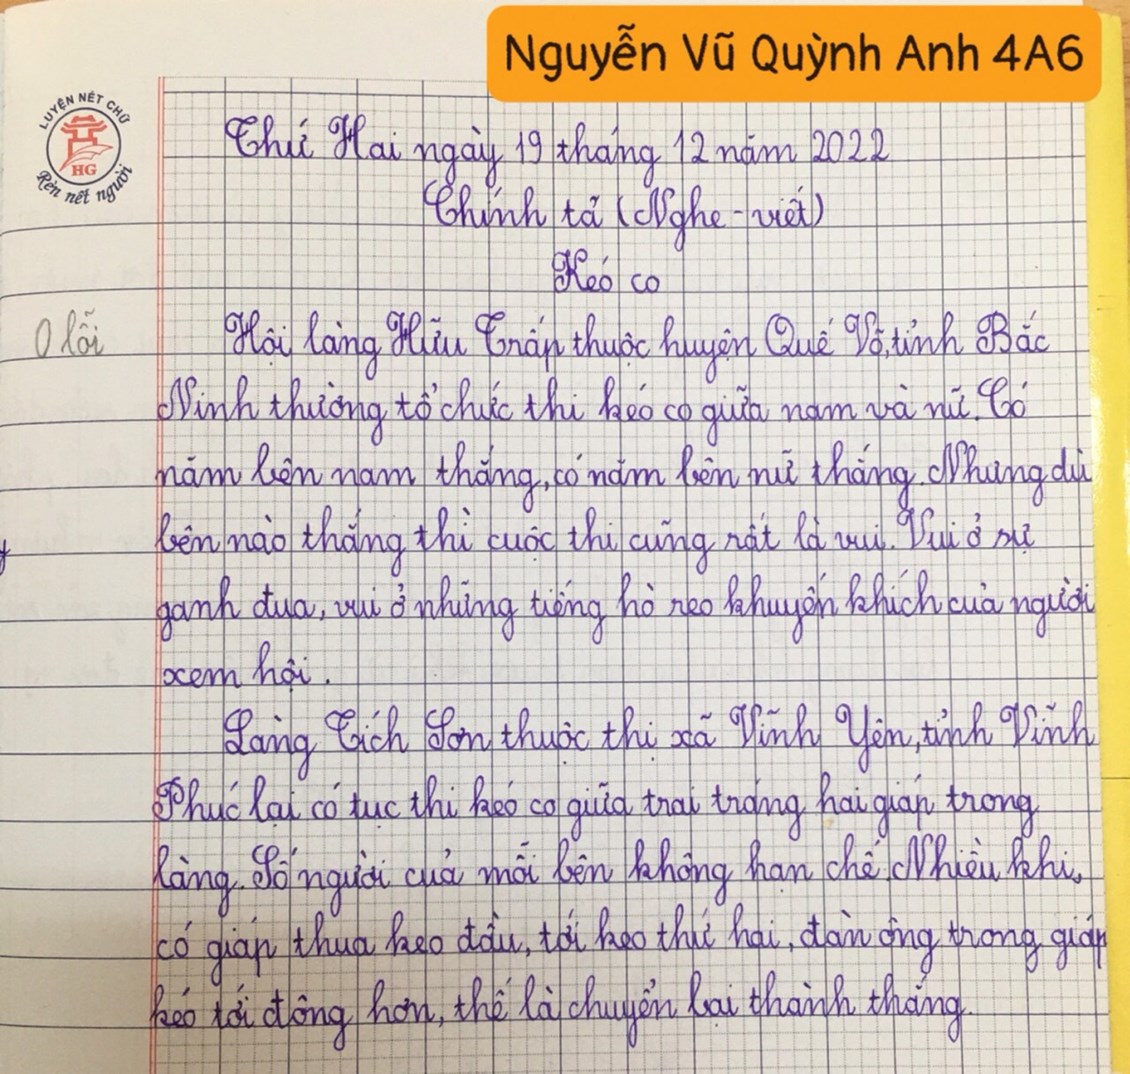 Nguyễn Vũ Quỳnh Anh 4A6
LUYỆN NÉT CHỮ
HG
Rèn nết người
Thứ Hai ngày 19 tháng 12 năm 2022
Chính tả (Nghe - viết)
Kéo co
0 lỗi
Hội làng Hữu Trấp thuộc huyện Quế Võ, tỉnh Bắc
Ninh thường tổ chức thi kéo co giữa nam và nữ. Có
năm bên nam thắng, có năm bên nữ thắng. Nhưng dù
bên nào thắng thì cuộc thi cũng rất là vui. Vui ở sự
ganh đua, vui ở những tiếng hò reo khuyến khích của người
xem hội.
Làng Tích Sơn thuộc thị xã Vĩnh Yên, tỉnh Vĩnh
Phúc lại có tục thi kéo co giữa trai tráng hai giáp trong
làng. Số người của mỗi bên không hạn chế. Nhiều khi,
có giáp thua keo đầu, tới keo thứ hai, đàn ông trong giáp
kéo tới đông hơn, thế là chuyển bại thành thắng.